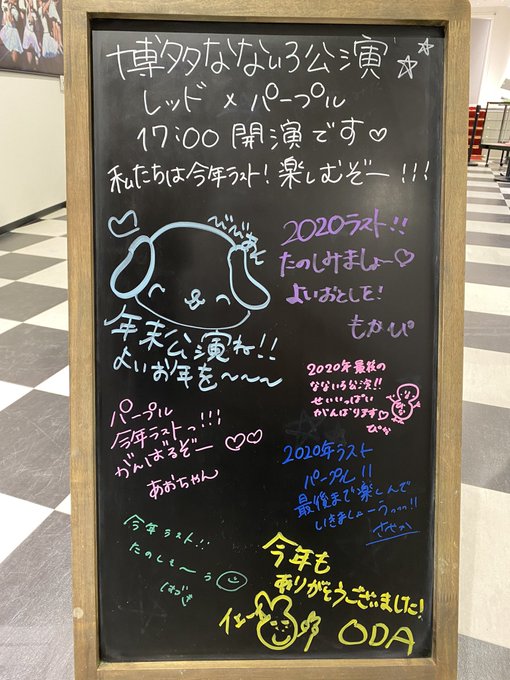 博多なないろ公演
レッド×パープル
17:00 開演です♡
私たちは今年ラスト!楽しむぞー!!!
年末公演ね!!
よいお年を〜〜〜
2020ラスト!!
たのしみましょー♡
よいおとしを!
もかぴ
2020年最後の
なないろ公演!!
せいいっぱい
がんばります♡
ぴな
パープル
今年ラストっ!!!
がんばるぞー
あおちゃん
2020年ラスト
パープル!!
最後まで楽しんで
いきましょーう!!
今年ラスト!!
たのしも〜う
はづき
今年も
ありがとうございました!
ODA